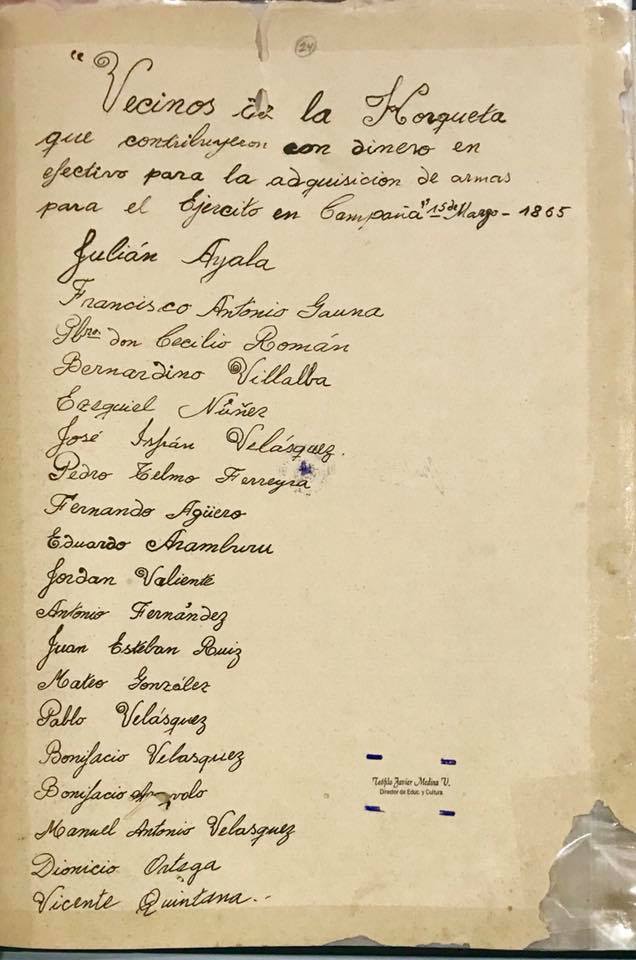 24
"Vecinos de la Horqueta
que contribuyeron con dinero en
efectivo para la adquisicion de armas
para el Ejercito en Campaña" 15 de Marzo - 1865
Julián Ayala
Francisco Antonio Gauna
Pbro. don Cecilio Román
Bernardino Villalba
Ezequiel Núñez
José Velásquez.
Pedro Telmo Ferreyra
Fernando Agüero
Eduardo Aramburu
Jordan Valiente
Antonio Fernández
Juan Esteban Ruiz
Mateo González
Pablo Velásquez
Bonifacio Velasquez
Bonifacio
Manuel Antonio Velasquez
Dionicio Ortega
Vicente Quintana..-
Javier Medina V.
Director de Educ. y Cultura